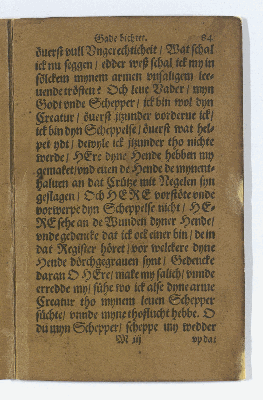 Gades dichter. 84
överst vull Ungerechticheit / Wat schal
ick nu seggen / edder weß schal ick my in
sölckem mynem armen unsaligem le-
uende trösten? Och leue Vader / myn
Godt unde Schepper / ick bin wol dyn
Creatur / överst itzunder vorderne ick /
ick bin dyn Scheppelse / överst wat hel-
pet ydt / dewyle ick itzunder tho nichte
werde / HEre dyne Hende hebben my
gemaket / und euen de Hende de mynent-
haluen an dat Crütze mit Negelen syn
geslagen / Och HERE vorstöte unde
vorwerpe dyn Scheppelse nicht / HE-
RE sehe an de Wunden dyner Hende /
unde gedencke dat ick ock einer bin / de in
dat Register höret / vor welckere dyne
Hende dörchgegrauen synt / Gedencke
daran O HEre / make my salich / unnde
erredde my / sühe wo ick alse dyne arme
Creatur tho mynem leuen Schepper
süchte / unnde myne thoflucht hebbe. O
du myn Schepper / scheppe my wedder
M iij up dat